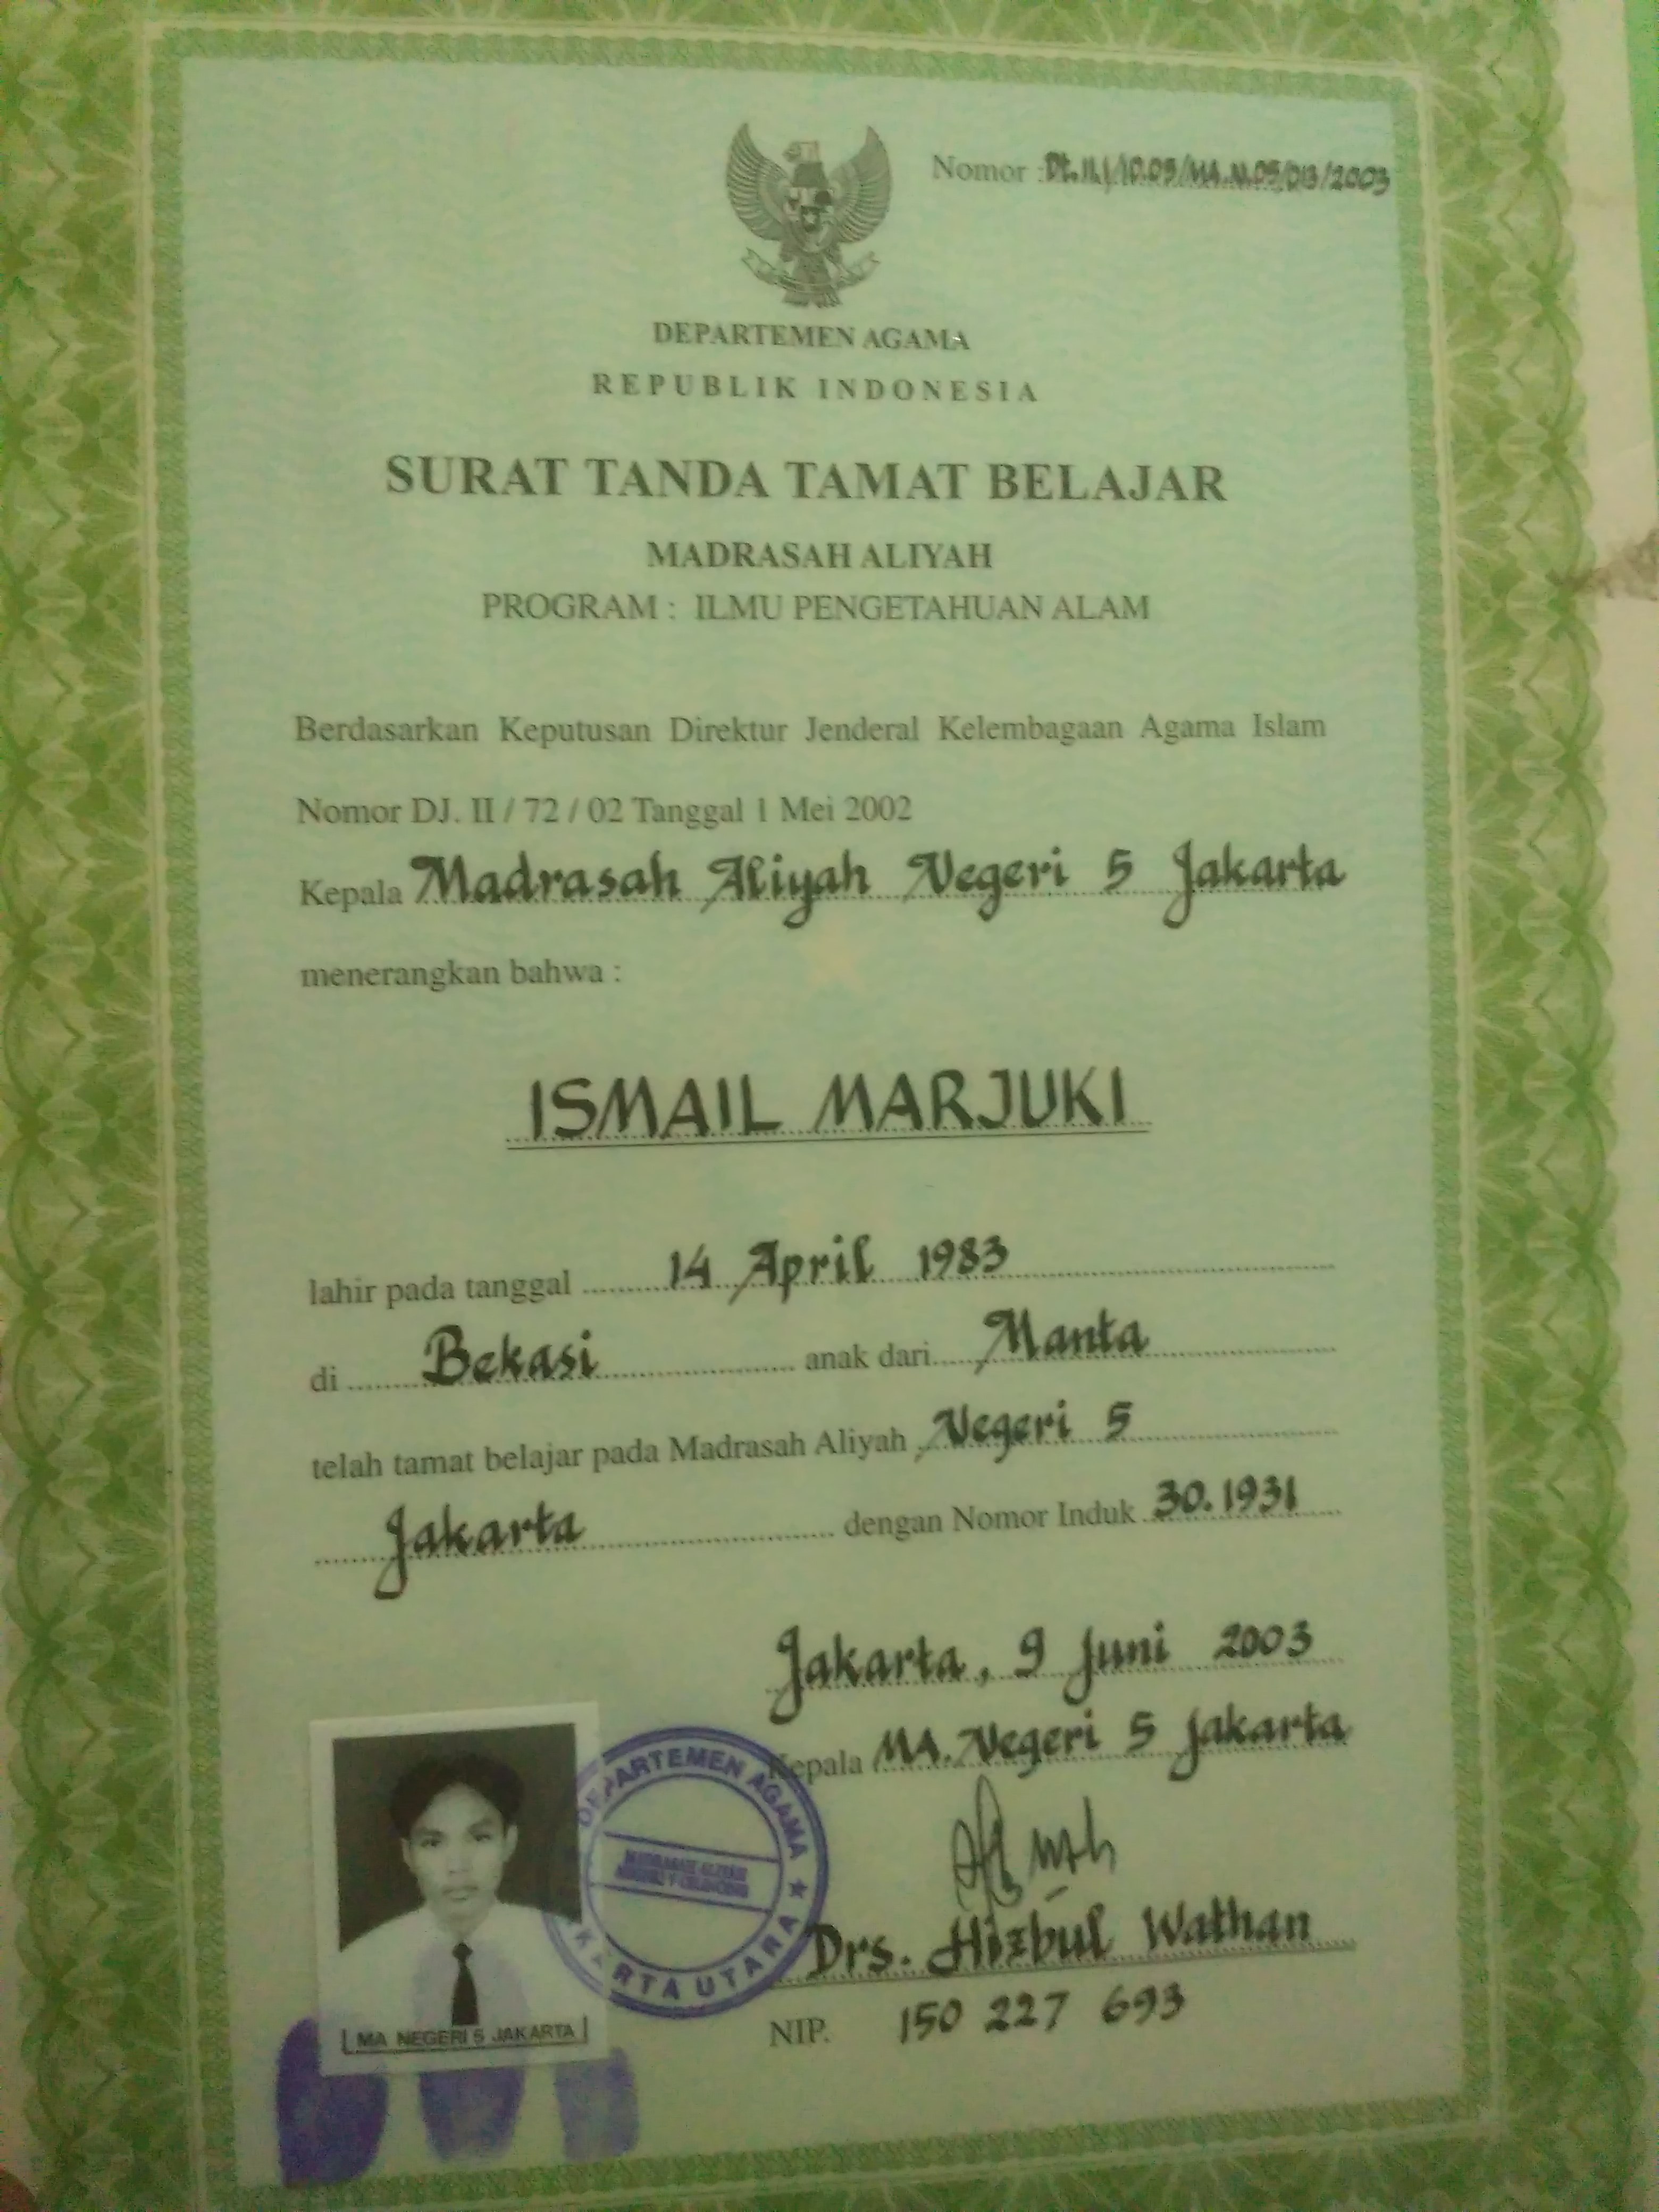 Nomor : Dt.II.I/10.09/MA.N.05/013/2003
DEPARTEMEN AGAMA
REPUBLIK INDONESIA
SURAT TANDA TAMAT BELAJAR
MADRASAH ALIYAH
PROGRAM : ILMU PENGETAHUAN ALAM
Berdasarkan Keputusan Direktur Jenderal Kelembagaan Agama Islam
Nomor DJ. II / 72 / 02 Tanggal 1 Mei 2002
Kepala Madrasah Aliyah Negeri 5 Jakarta
menerangkan bahwa :
ISMAIL MARJUKI
lahir pada tanggal 14 April 1983
di Bekasi anak dari Manta
telah tamat belajar pada Madrasah Aliyah Negeri 5
Jakarta dengan Nomor Induk 30.1931
Jakarta, 9 Juni 2003
Kepala MA. Negeri 5 Jakarta
DEPARTEMEN AGAMA
MADRASAH ALIYAH
JAKARTA UTARA
Drs. Hizbul Wathan
NIP. 150 227 693
MA NEGERI 5 JAKARTA